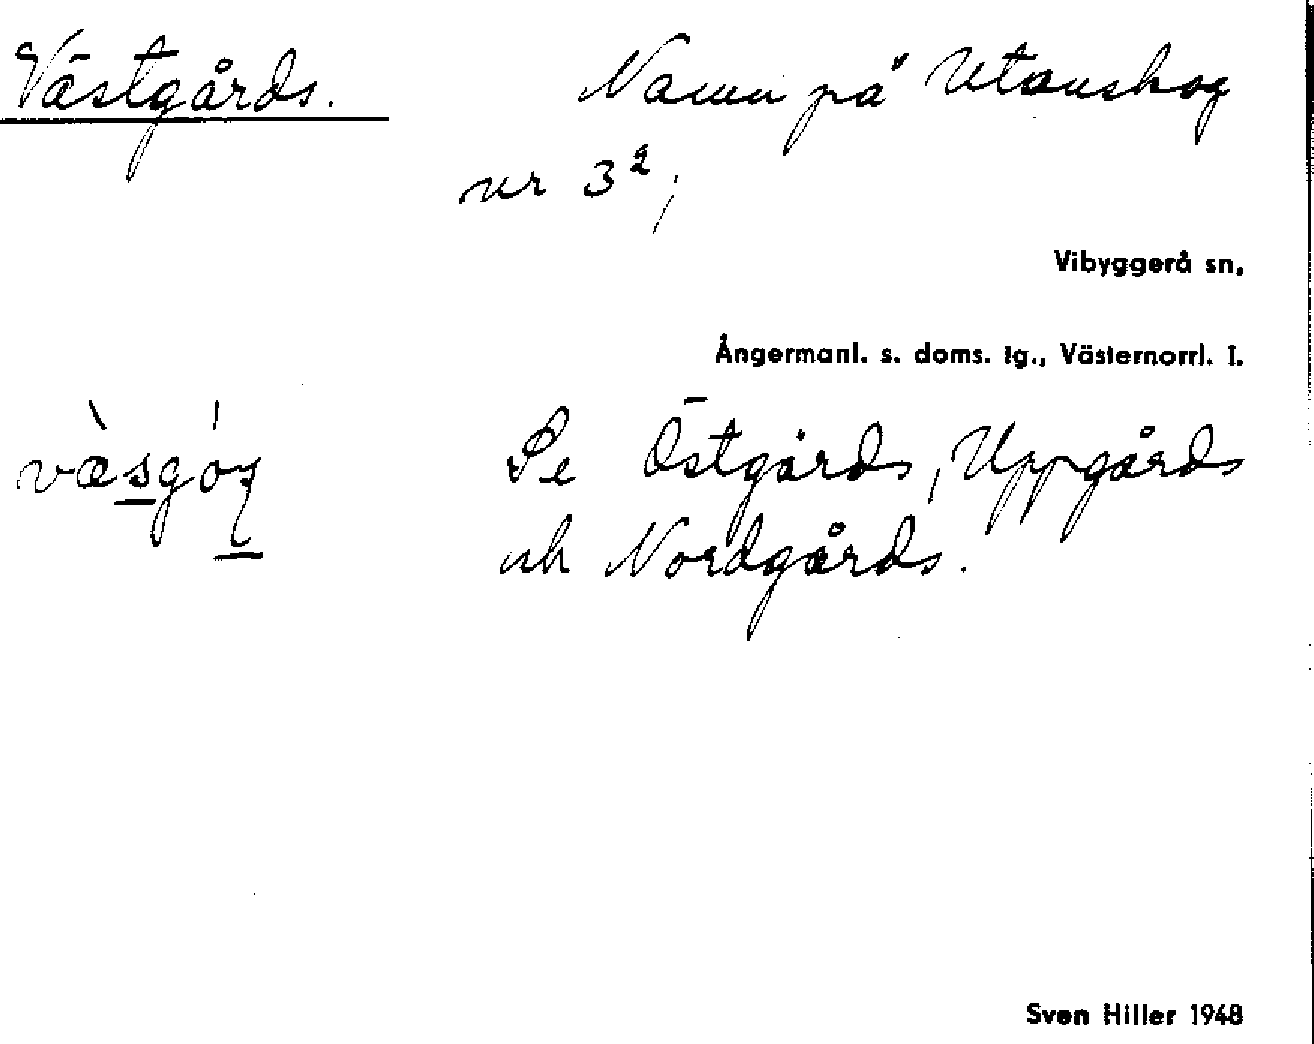 Västgårds. Namn på Utanskog
nr 3²;
Vibyggerå sn,
Ångermanl. s. doms. tg., Västernorrl. l.
Se Östgårds, Uppgårds
och Nordgårds.
Sven Hiller 1948